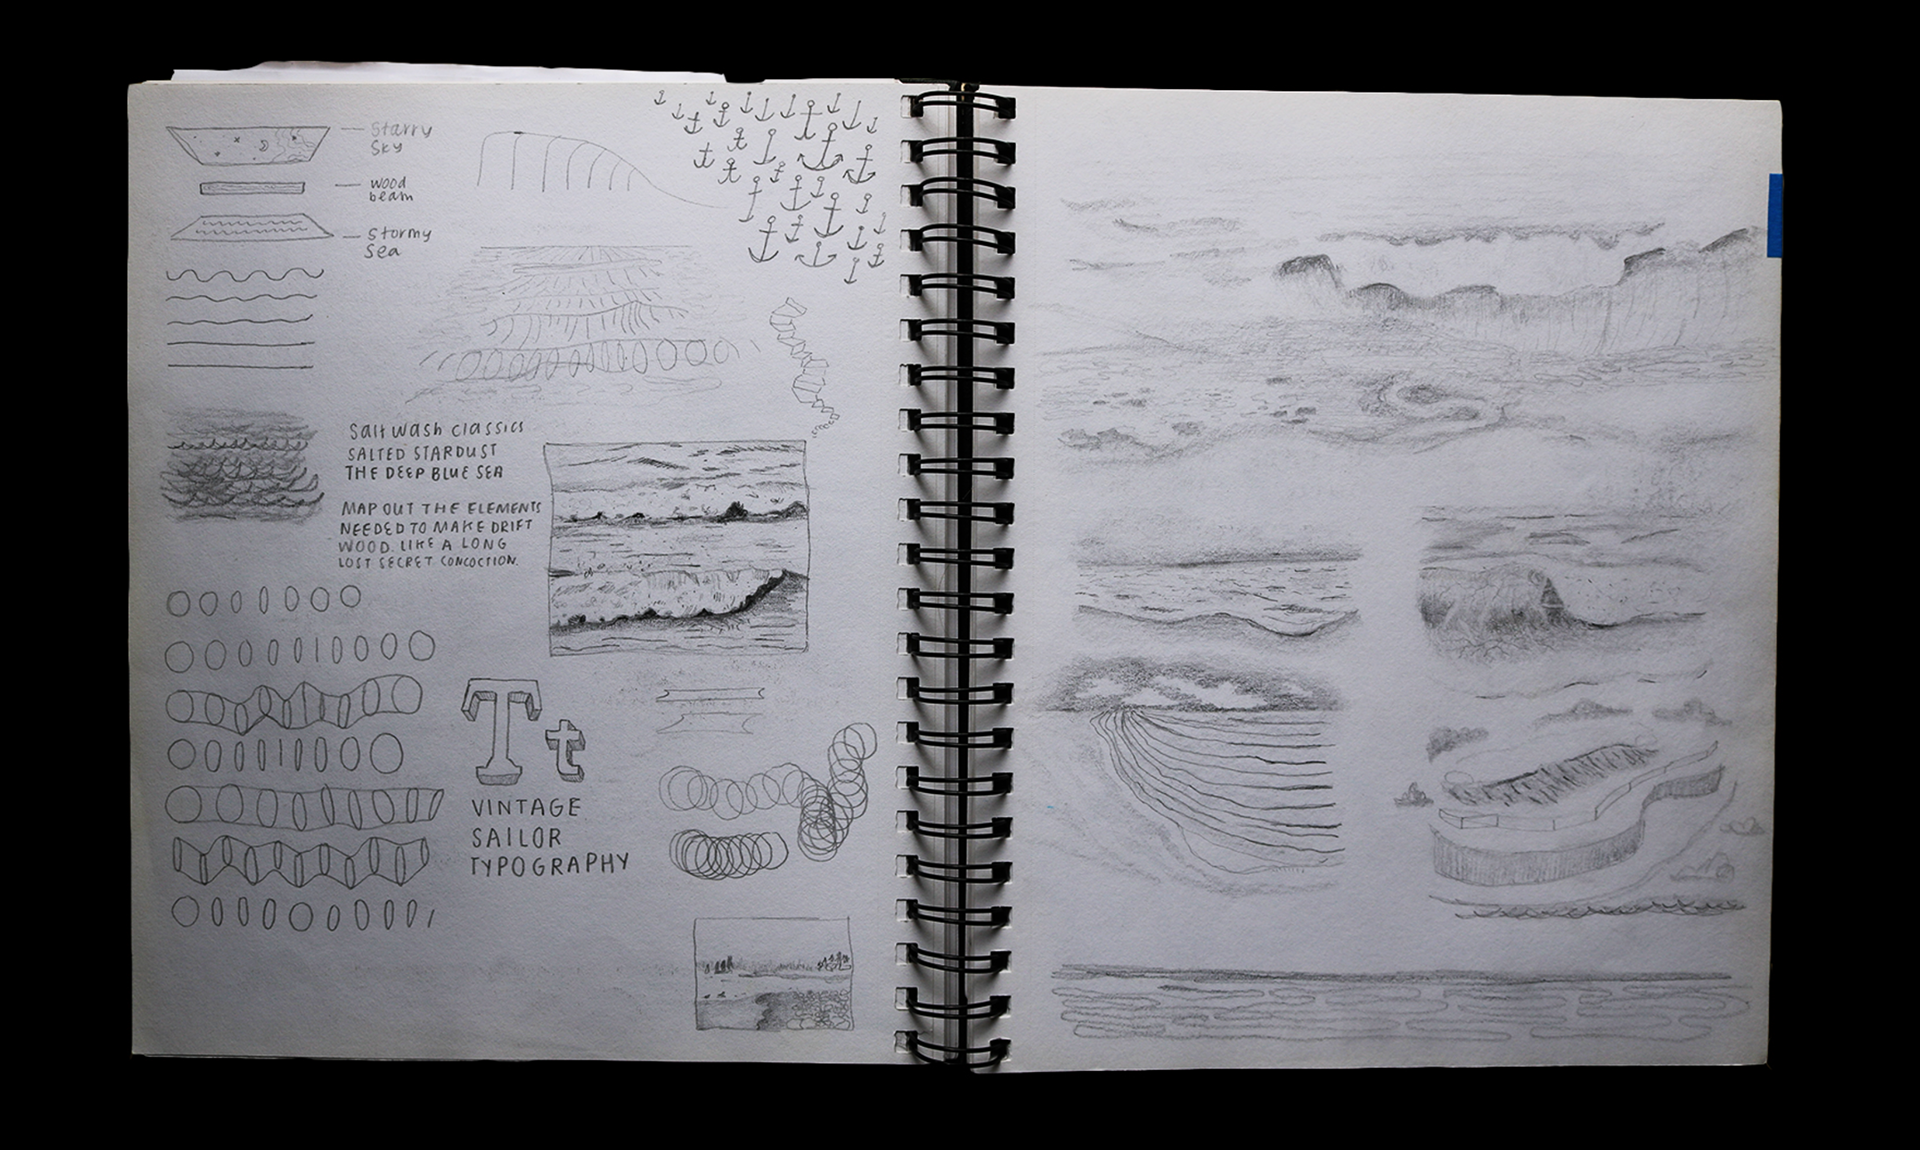 Starry
Sky
wood
beam
Stormy
Sea
Salt wash classics
SALTED STARDUST
THE DEEP BLUE SEA
MAP OUT THE ELEMENTS
NEEDED TO MAKE DRIFT
WOOD. LIKE A LONG
LOST SECRET CONCOCTION.
Tt
VINTAGE
SAILOR
TYPOGRAPHY